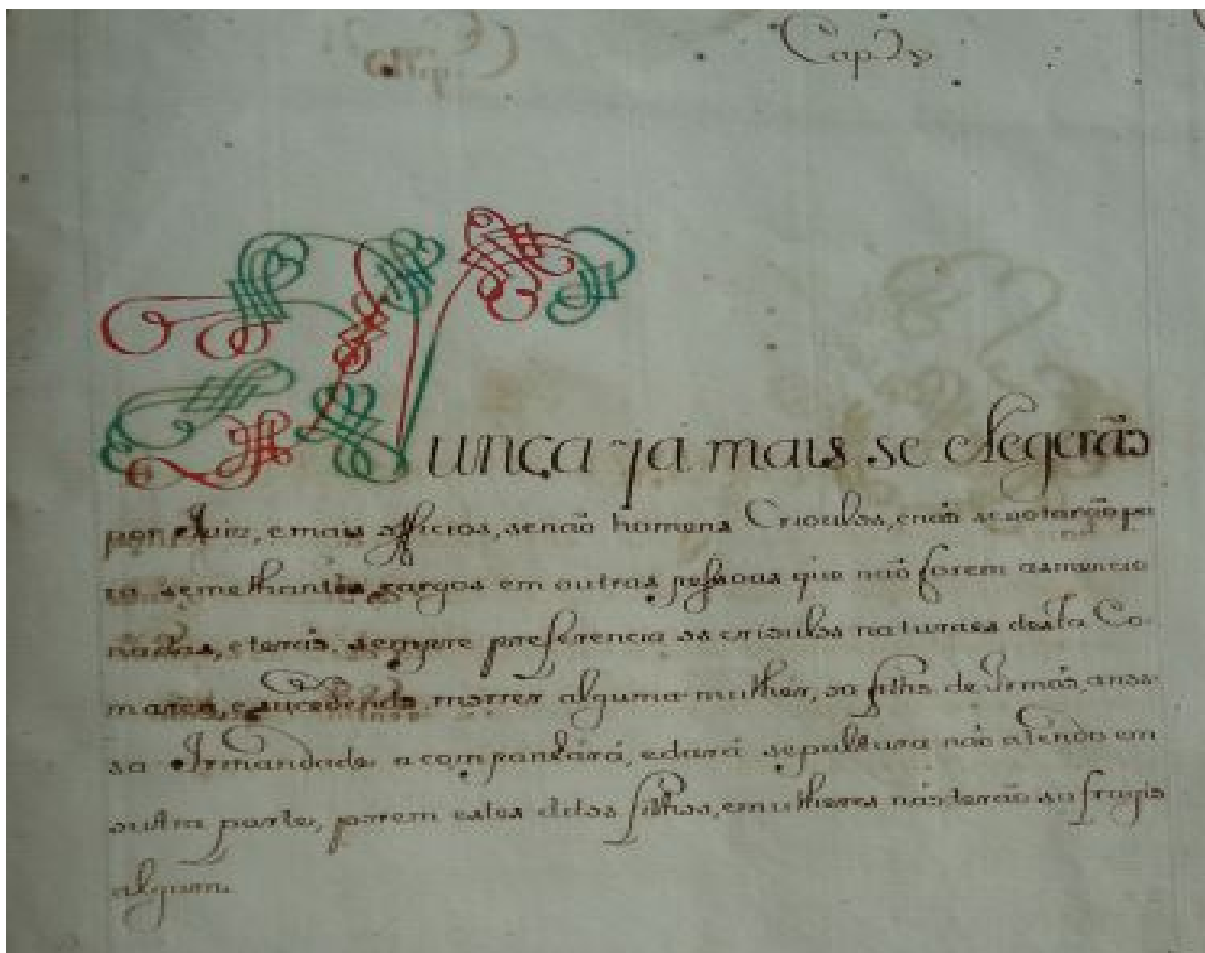 Nunca ja mais se elegerão
por Juiz, e mais officios, senão homens Crioulos, e não se votarão pa
ra semelhantes cargos em outras pessoas que não forem asmencio
nadas, e terão sempre preferencia os crioulos naturaes desta Co
marca, e sucedendo morrer alguma mulher, ou filho de Irmão, anos
sa Irmandade acompanhará, edará sepultura não atendo em
outra parte, porem estes ditos filhos, emulheres não terão sufragio
algum.